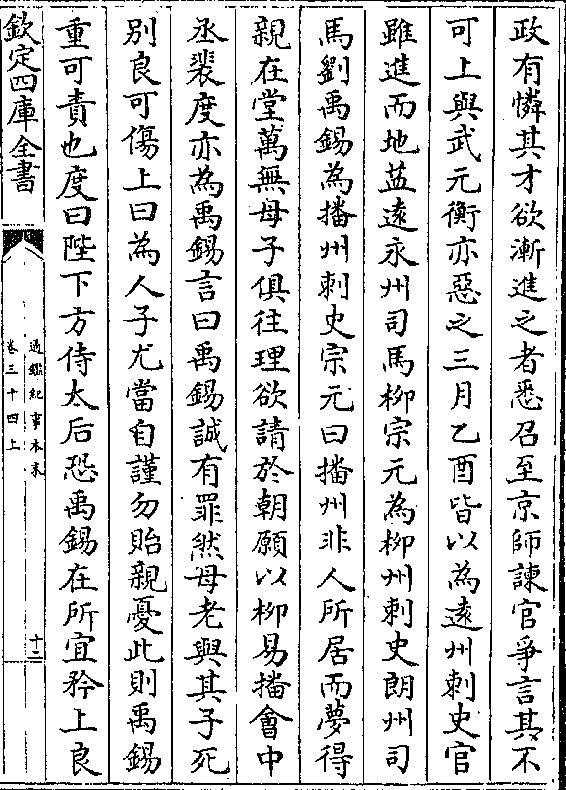 政有憐其才欲漸進之者悉召至京師諫官爭言其不
可上與武元衡亦惡之三月乙酉皆以為遠州刺史官
雖進而地益遠永州司馬柳宗元為柳州刺史朗州司
馬劉禹錫為播州刺史宗元曰播州非人所居而夢得
親在堂萬無母子俱往理欲請於朝願以柳易播會中
丞裴度亦為禹錫言曰禹錫誠有罪然母老與其子死
别良可傷上曰為人子尤當自謹勿貽親憂此則禹錫
重可責也度曰陛下方侍太后恐禹錫在所宜矜上良
欽定四庫全書
通鑑紀事本末
卷三十四上
十二